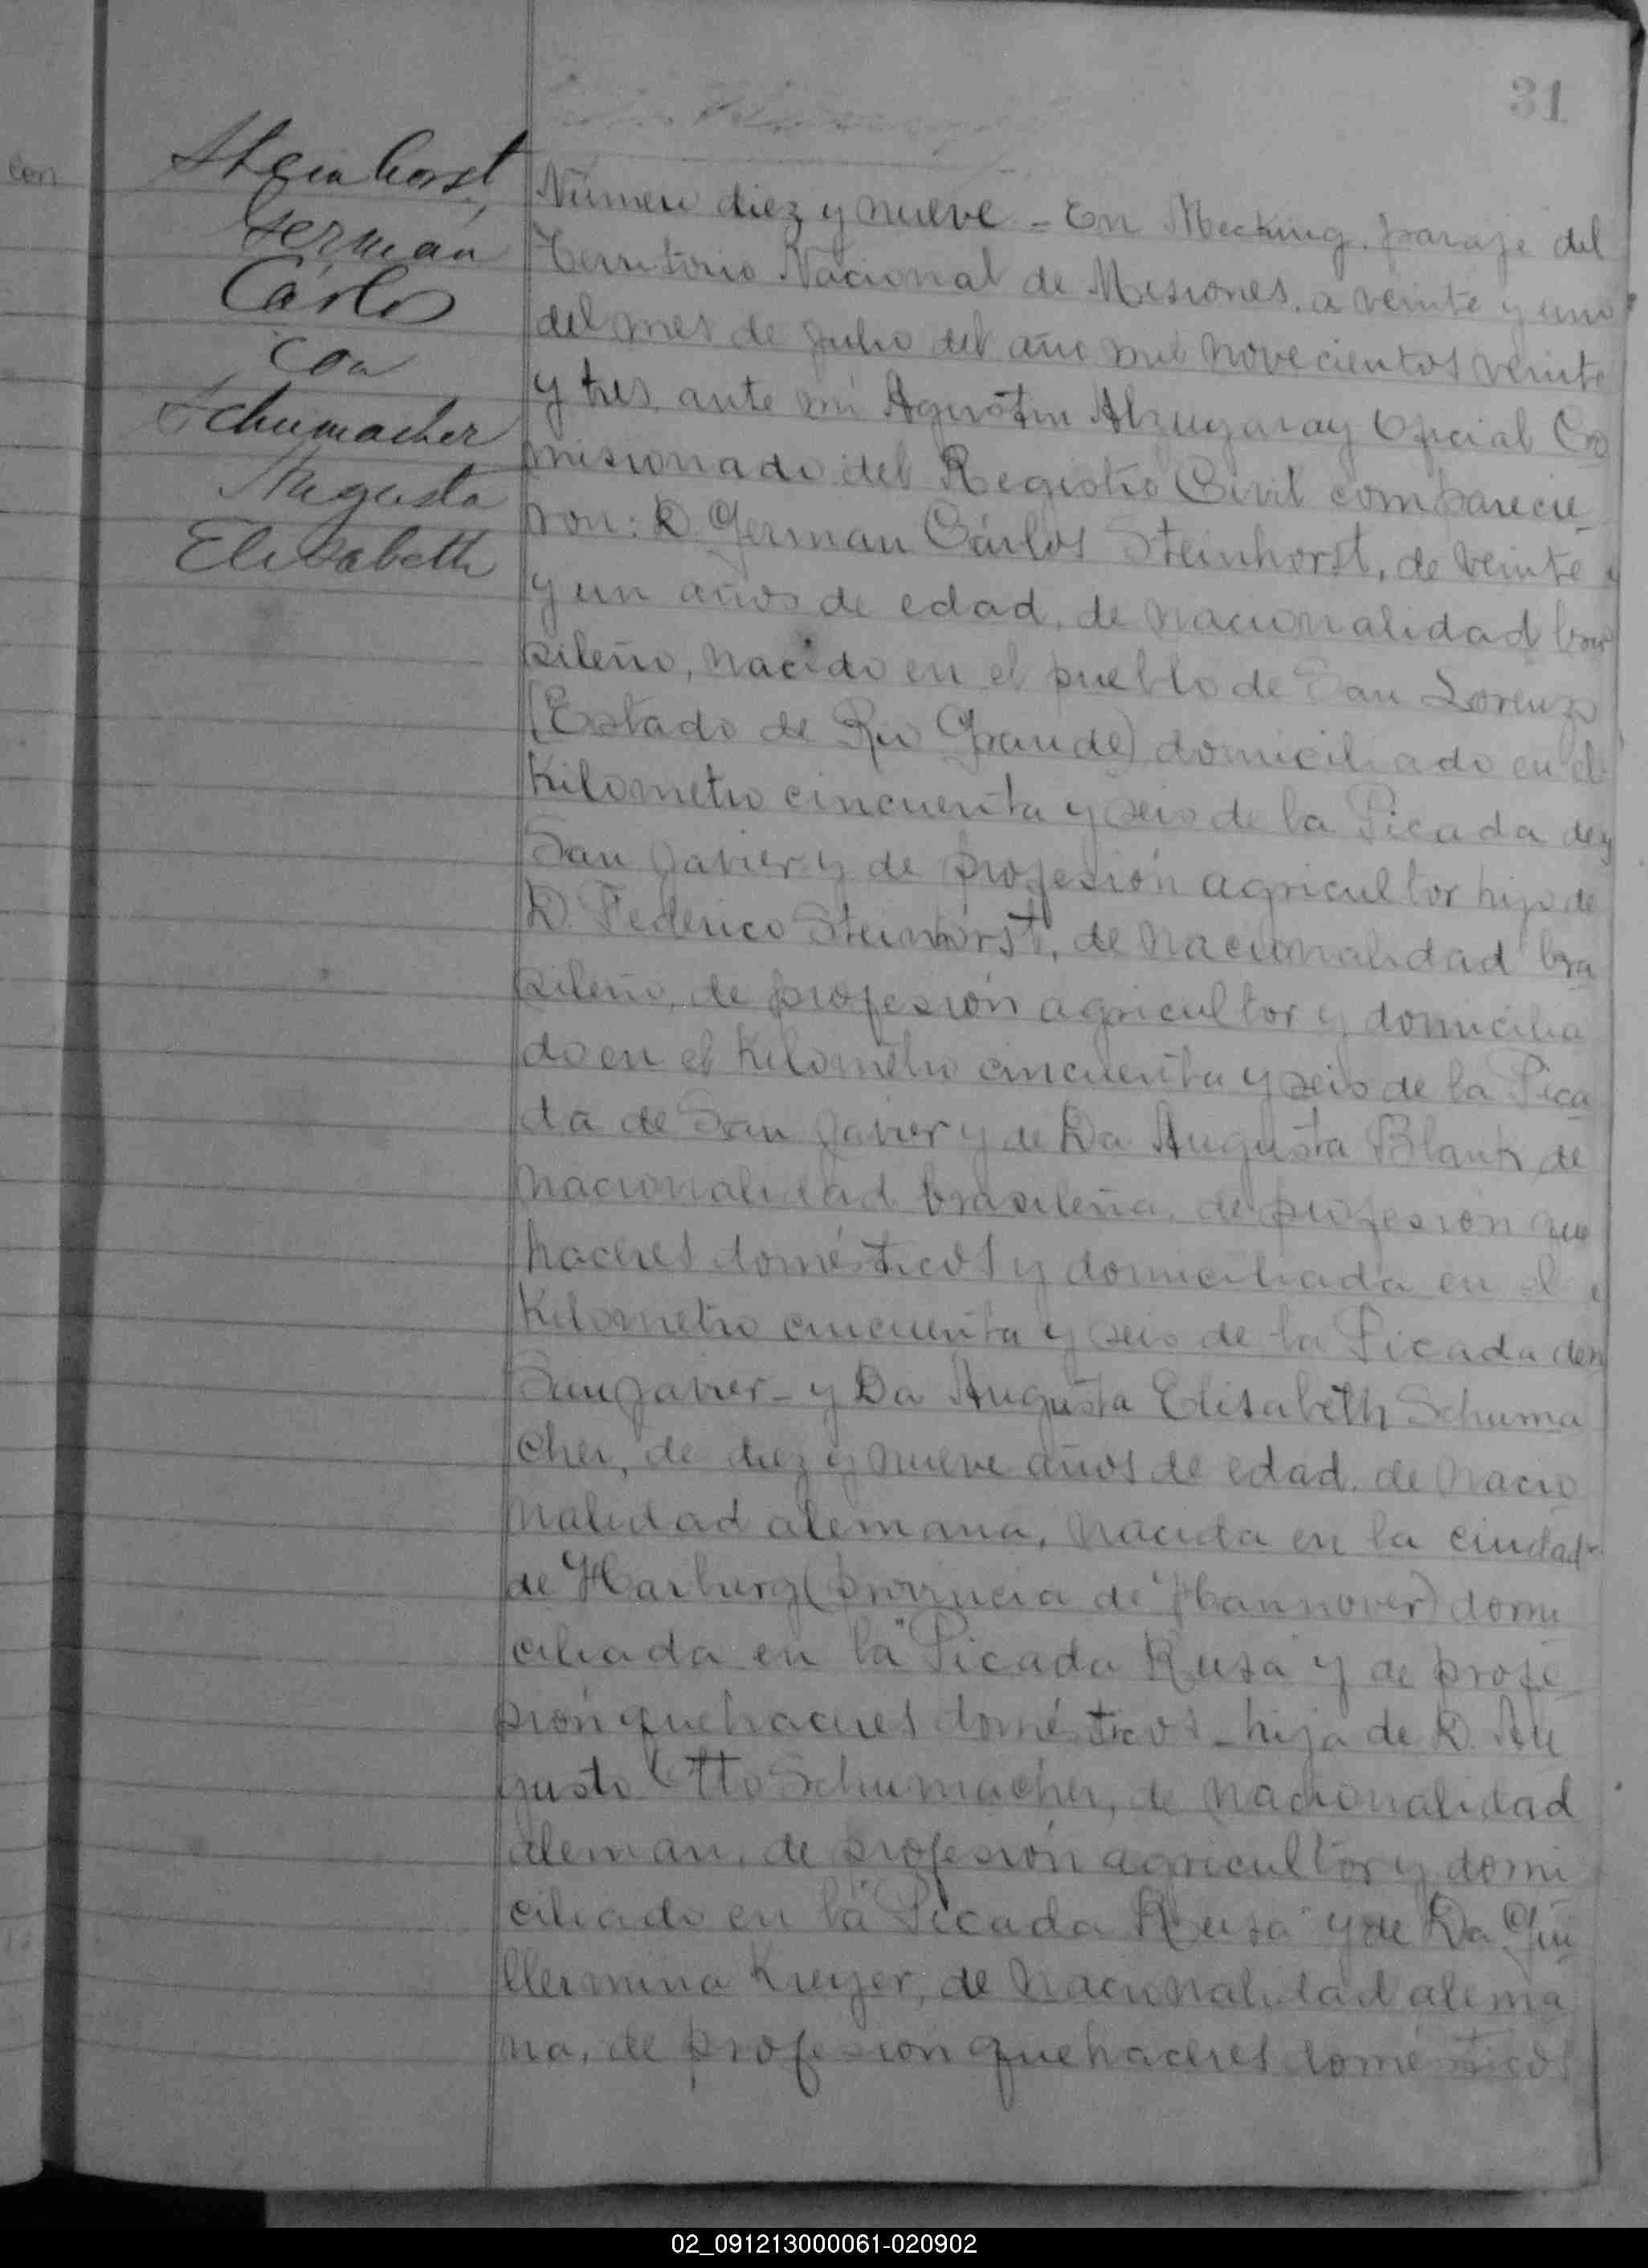 31
con
Steinhorst,
Germán
Cárlos
con
Schumacher
Augusta
Elisabeth
Número diez y nueve - En Mecking, paraje del
Territorio Nacional de Misiones, a veinte y uno
del mes de Julio del año mil novecientos veinte
y tres, ante mi Agustin Alzugaray Oficial Co
misionado del Registro Civil comparecie
ron: D. German Cárlos Steinhorst, de veinte
y un años de edad, de nacionalidad bra
sileño, nacido en el pueblo de San Lorenzo
(Estado de Rio Grande) domiciliado en el
Kilometro cincuenta y seis de la Picada de
San Javier y de profesión agricultor hijo de
D. Federico Steinhorst, de nacionalidad bra
sileño, de profesión agricultor y domicilia
do en el Kilometro cincuenta y seis de la Pica
da de San Javier y de Da Augusta Blank de
nacionalidad brasileña, de profesión que
haceres domésticos y domiciliada en el
Kilometro cincuenta y seis de la Picada de
San Javier - y Da Augusta Elisabeth Schuma
cher, de diez y nueve años de edad, de nacio
nalidad alemana, nacida en la ciudad
de Harburg (provincia de Hannover) domi
ciliada en la "Picada Rusa y de profe
sión quehaceres domésticos - hija de D. Au
gusto Otto Schumacher, de nacionalidad
aleman, de profesión agricultor y domi
ciliado en la "Picada Rusa" y de Da Gui
llermina Kreyer, de nacionalidad alema
na, de profesion quehaceres domésticos
02_091213000061-020902